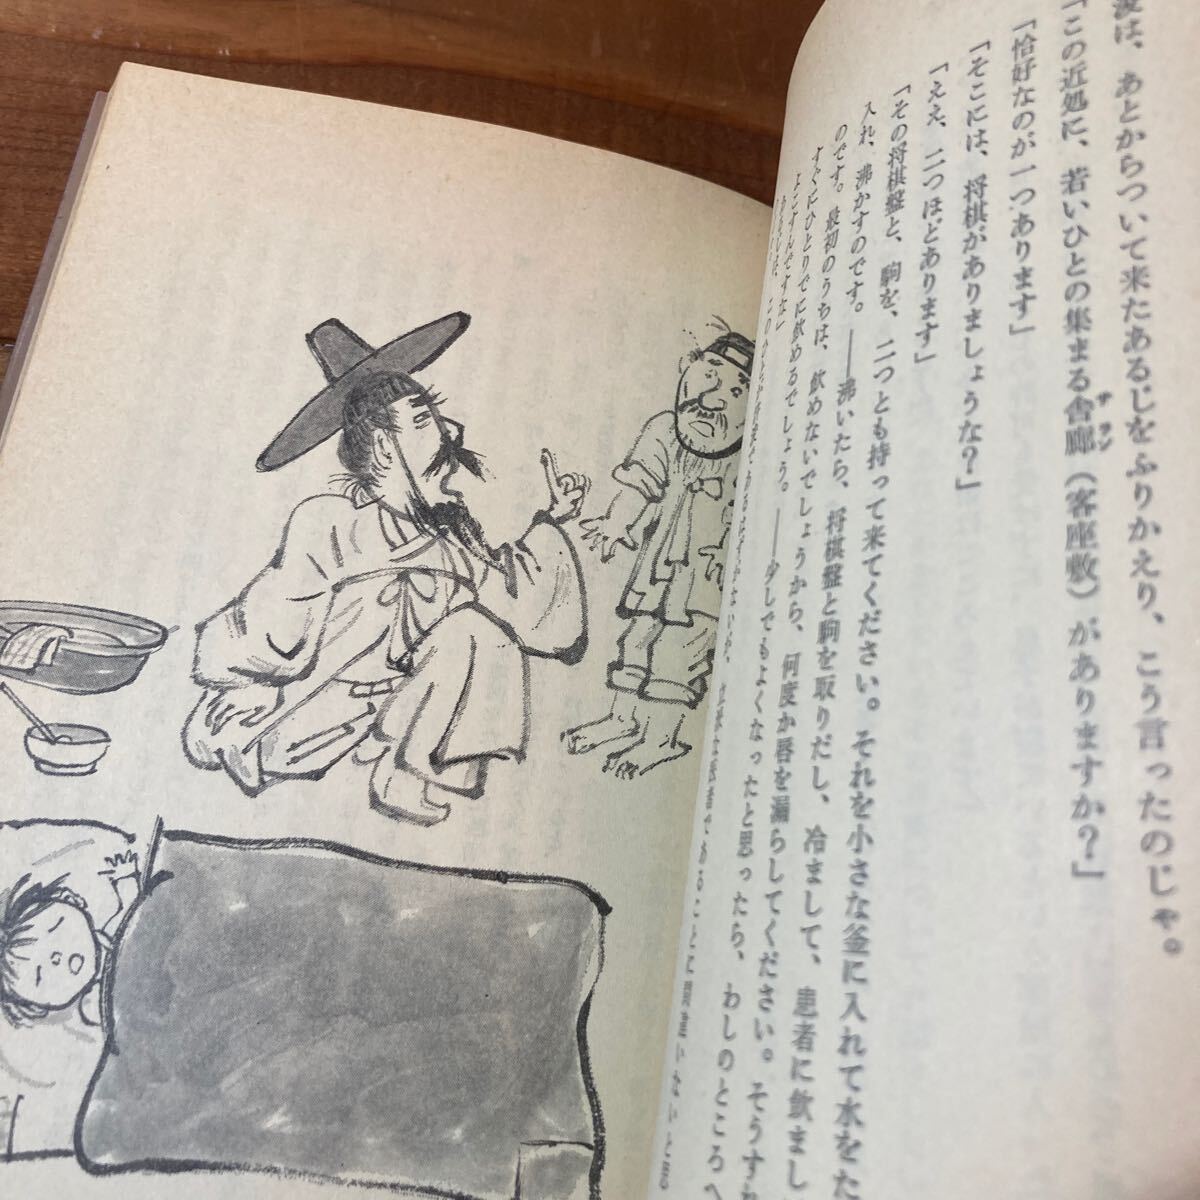 は、あとからついて来たあるじをふりかえり、こう言ったのじゃ。
「この近処に、若いひとの集まる舎廊（客座敷）がありますか？」
サラン
「恰好なのが一つあります」
「そこには、将棋がありましょうな？」
「ええ、二つほどあります」
「その将棋盤と、駒を、二つとも持って来てください。それを小さな釜に入れて水をた
入れ、沸かすのです。――沸いたら、将棋盤と駒を取りだし、冷まして、患者に飲まし
のです。最初のうちは、飲めないでしょうから、何度か唇を濡らしてください。そうすれ
すぐにひとりでに飲めるでしょう。――少しでもよくなったと思ったら、わしのところへ
よこすんですな」
あるじは、このひとが
であるはずがないが、
であることに間違いないと思